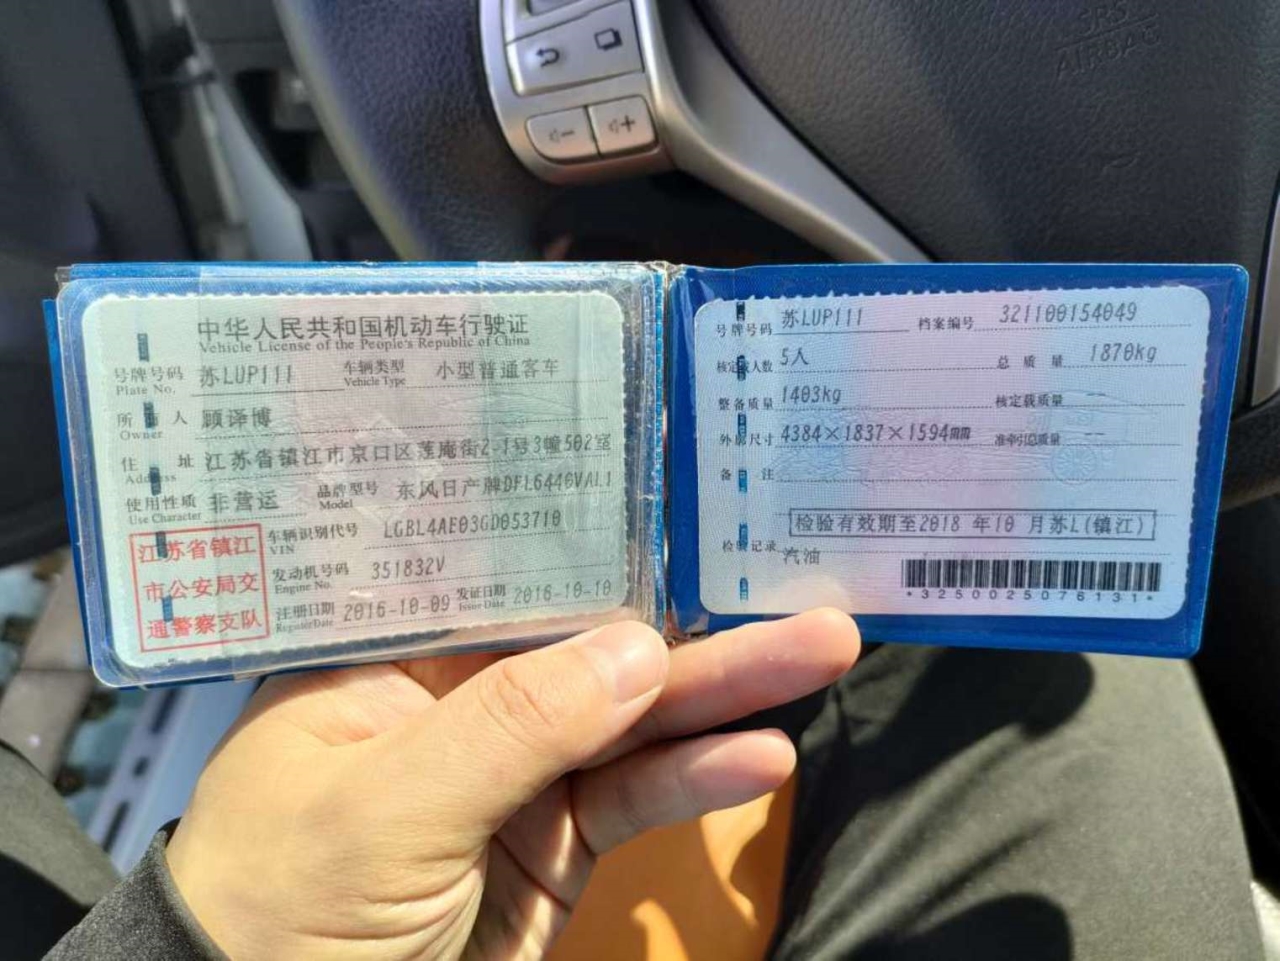 SRS
AIRBAG
中华人民共和国机动车行驶证
Vehicle License of the People's Republic of China
号牌号码 苏LUP111 车辆类型 小型普通客车
Plate No. Vehicle Type
所有人 顾译博
Owner
住址 江苏省镇江市京口区莲庵街2-1号3幢502室
Address
使用性质 非营运 品牌型号 东风日产牌DFL6446VAL1
Use Character Model
江苏省镇江
市公安局交
通警察支队
车辆识别代号 LGBL4AE03GD053710
VIN
发动机号码 351832V
Engine No.
注册日期 2016-10-09 发证日期 2016-10-10
Register Date Issue Date
号牌号码 苏LUP111 档案编号 321100154049
核定载人数 5人 总质量 1870kg
整备质量 1403kg 核定载质量 --
外廓尺寸 4384×1837×1594mm 准牵引总质量 --
备注
检验有效期至2018 年10 月苏L(镇江)
检验记录 汽油
*3250025076131*